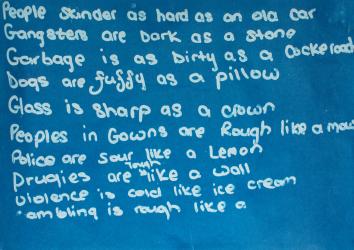 People skinder as hard as an old car
Gangsters are Dark as a stone
Garbage is as Dirty as a Cockroad
Dogs are fuffy as a pillow
Glass is sharp as a crown
Peoples in Gowns are Rough like a
Police are sour like a Lemon
Drugies are Tough like a wall
violence is cold like ice cream
ambling is rough like a